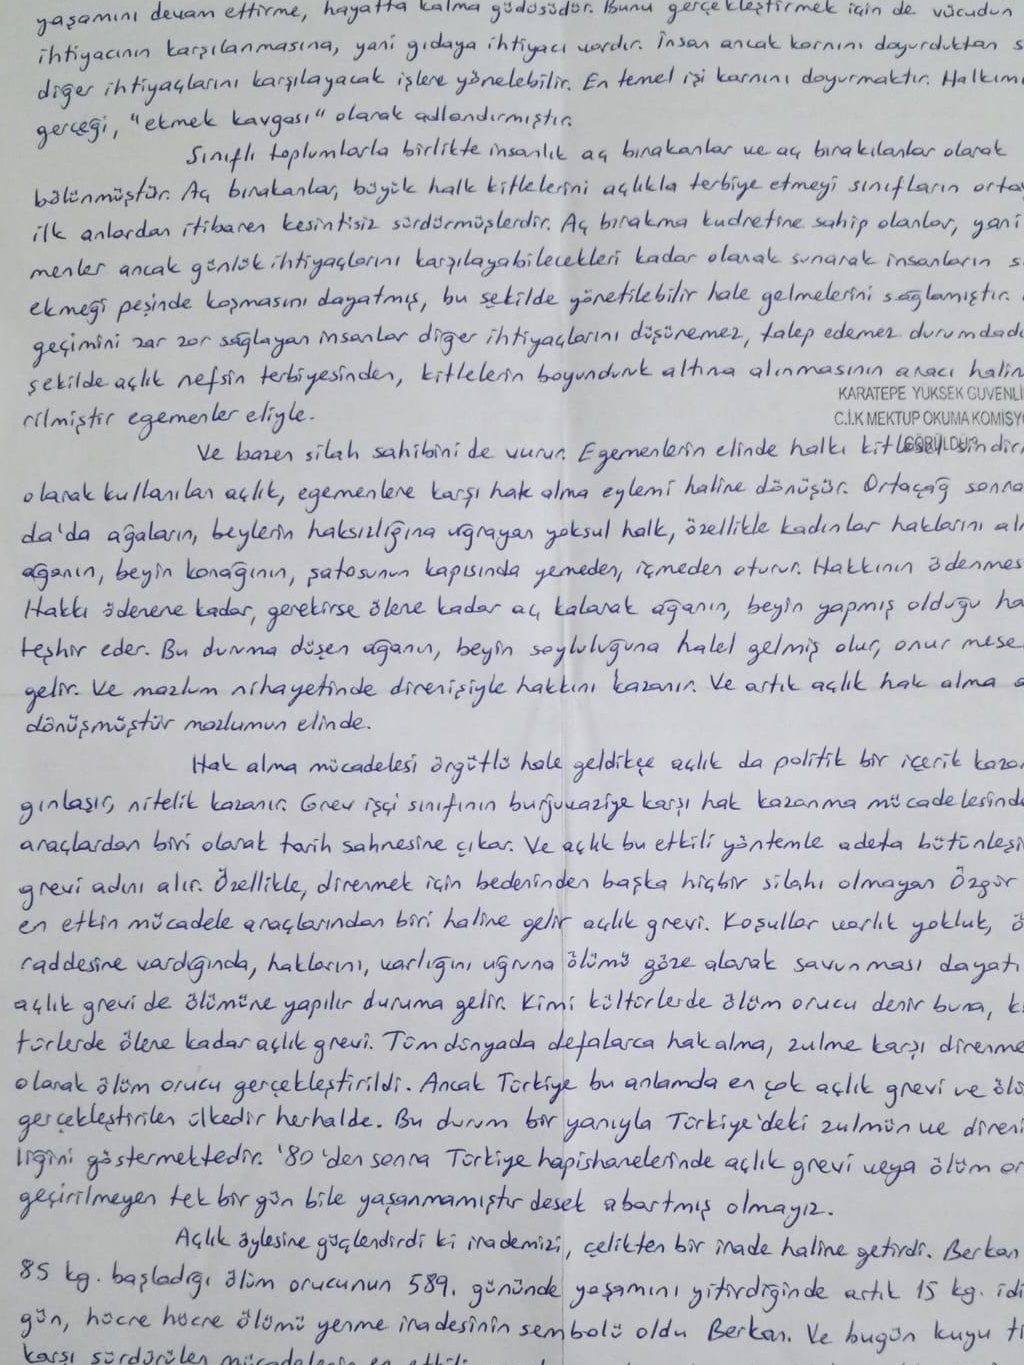 yaşamını devam ettirme, hayatta kalma güdüsüdür. Bunu gerçekleştirmek için de vücudun
ihtiyacının karşılanmasına, yani gıdaya ihtiyacı vardır. İnsan ancak karnını doyurduktan s
diğer ihtiyaçlarını karşılayacak işlere yönelebilir. En temel işi karnını doyurmaktır. Halkımı
gerçeği, "ekmek kavgası" olarak adlandırmıştır.
Sınıflı toplumlarla birlikte insanlık aç bırakanlar ve aç bırakılanlar olarak
bölünmüştür. Aç bırakanlar, büyük halk kitlelerini açlıkla terbiye etmeyi sınıfların orta
ilk anlardan itibaren kesintisiz sürdürmüşlerdir. Aç bırakma kudretine sahip olanlar, yani
menler ancak günlük ihtiyaçlarını karşılayabilecekleri kadar olarak sunarak insanların s
ekmeği peşinde koşmasını dayatmış, bu şekilde yönetilebilir hale gelmelerini sağlamıştır.
geçimini zar zor sağlayan insanlar diğer ihtiyaçlarını düşünemez, talep edemez durumdadı
şekilde açlık nefsin terbiyesinden, kitlelerin boyunduruk altına alınmasının aracı halin
KARATEPE YÜKSEK GÜVENLİ
rilmiştir egemenler eliyle.
C.İ.K MEKTUP OKUMA KOMİSYO
GÖRÜLDÜ
Ve bazen silah sahibini de vurur. Egemenlerin elinde halkı kitlesel sindir
olarak kullanılan açlık, egemenlere karşı hak alma eylemi haline dönüşür. Ortaçağ sonra
da'da ağaların, beylerin haksızlığına uğrayan yoksul halk, özellikle kadınlar haklarını al
ağanın, beyin konağının, şatosunun kapısında yemeden, içmeden oturur. Hakkının ödenmes
Hakkı ödenene kadar, gerekirse ölene kadar aç kalarak ağanın, beyin yapmış olduğu ha
teşhir eder. Bu duruma düşen ağanın, beyin soyluluğuna halel gelmiş olur, onur mese
gelir. Ve mazlum nihayetinde direnişiyle hakkını kazanır. Ve artık açlık hak alma a
dönüşmüştür mazlumun elinde.
Hak alma mücadelesi örgütlü hale geldikçe açlık da politik bir içerik kaza
gınlaşır, nitelik kazanır. Grev işçi sınıfının burjuvaziye karşı hak kazanma mücadelesinde
araçlardan biri olarak tarih sahnesine çıkar. Ve açlık bu etkili yöntemle adeta bütünleşi
grevi adını alır. Özellikle, direnmek için bedeninden başka hiçbir silahı olmayan Özgür
en etkin mücadele araçlarından biri haline gelir açlık grevi. Koşullar varlık yokluk, ö
raddesine vardığında, haklarını, varlığını uğruna ölümü göze alarak savunması dayatı
açlık grevi de ölümüne yapılır duruma gelir. Kimi kültürlerde ölüm orucu denir buna, k
türlerde ölene kadar açlık grevi. Tüm dünyada defalarca hak alma, zulme karşı direnme
olarak ölüm orucu gerçekleştirildi. Ancak Türkiye bu anlamda en çok açlık grevi ve ölü
gerçekleştirilen ülkedir herhalde. Bu durum bir yanıyla Türkiye'deki zulmün ve direni
liğini göstermektedir. '80'den sonra Türkiye hapishanelerinde açlık grevi veya ölüm or
geçirilmeyen tek bir gün bile yaşanmamıştır desek abartmış olmayız.
Açlık öylesine güçlendirdi ki irademizi, çelikten bir irade haline getirdi. Berkan
85 kg. başladığı ölüm orucunun 589. gününde yaşamını yitirdiğinde artık 15 kg. idi
gün, hücre hücre ölümü yenme iradesinin sembolü oldu Berkan. Ve bugün kuyu ti
karşı sürdürülen mücadelenin en etkili